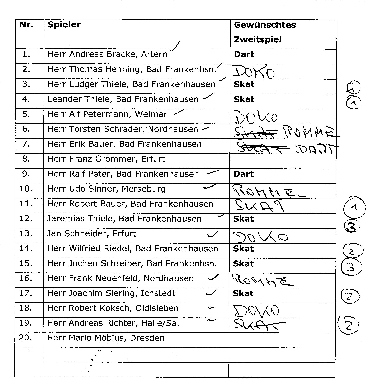 Nr. Spieler Gewünschtes Zweitspiel
1. Herr Andreas Bracke, Artern Dart
2. Herr Thomas Henning, Bad Frankenhsn. DOKO
3. Herr Ludger Thiele, Bad Frankenhausen Skat
4. Leander Thiele, Bad Frankenhausen Skat
5. Herr Alf Petermann, Weimar DOKO
6. Herr Torsten Schrader, Nordhausen ROMME
7. Herr Erik Bauer, Bad Frankenhausen DART
8. Herr Franz Grommer, Erfurt
9. Herr Ralf Pater, Bad Frankenhausen Dart
10. Herr Udo Sinner, Merseburg ROMME
11. Herr Robert Bauer, Bad Frankenhausen SKAT 1
12. Jeremias Thiele, Bad Frankenhausen Skat 3
13. Jan Schneider, Erfurt DOKO
14. Herr Wilfried Riedel, Bad Frankenhausen Skat 2
15. Herr Jochen Schreiber, Bad Frankenhsn. Skat 3
16. Herr Frank Neuenfeld, Nordhausen ROMME
17. Herr Joachim Siering, Ichstedt Skat 2
18. Herr Robert Koksch, Oldisleben DOKO
19. Herr Andreas Richter, Halle/Sa. SKAT 2
20. Herr Mario Möbius, Dresden